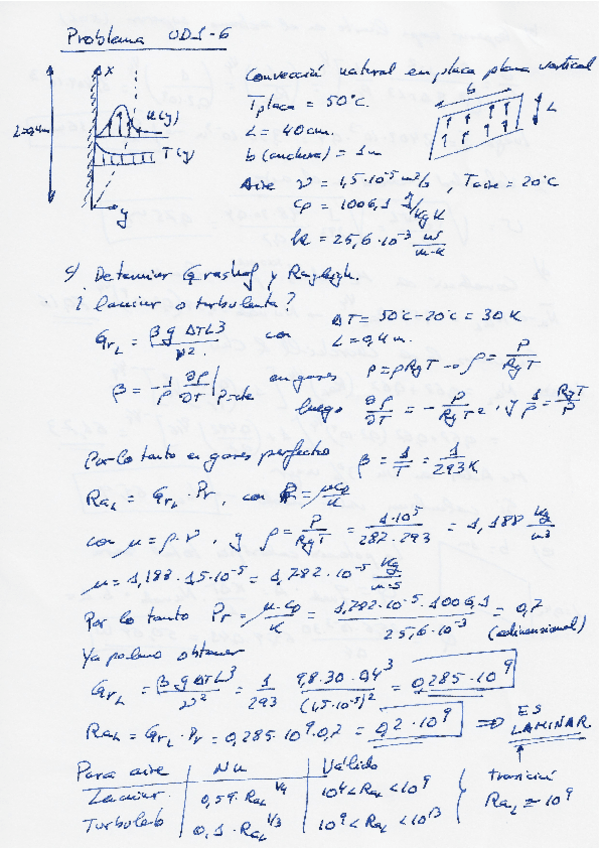 Problema UD1-6
x
L=0,4m
u(y)
T(y)
y
Convección natural en placa plana vertical
Tplaca = 50°C.
L = 40cm.
b (anchura) = 1m
b
L
Aire ν = 1,5·10⁻⁵ m²/s , Taire = 20°C
Cp = 1006,1 J/kg K
k = 25,6·10⁻³ W/m·K
a) Determinar Grashof y Rayleigh.
¿laminar o turbulento?
Gr_L = βgΔTL³/ν². con
ΔT = 50°C-20°C = 30K
L = 0,4m.
β = -1/ρ ∂ρ/∂T|p=cte en gases
P = ρRgT → ρ = P/RgT
luego ∂ρ/∂T = -P/RgT² , y 1/ρ = RgT/P
Por lo tanto en gases perfectos β = 1/T = 1/293K
Ra_L = Gr_L · Pr , con Pr = μCp/k
con μ = ρ·ν , y ρ = P/RgT = 1·10⁵/287·293 = 1,188 kg/m³
μ = 1,188·1,5·10⁻⁵ = 1,782·10⁻⁵ kg/m·s
Por lo tanto Pr = μ·Cp/k = 1,782·10⁻⁵·1006,1/25,6·10⁻³ = 0,7
(adimensional)
Ya podemos obtener
Gr_L = βgΔTL³/ν² = 1/293 9,8·30·0,4³/(1,5·10⁻⁵)² = 0,285·10⁹
Ra_L = Gr_L · Pr = 0,285·10⁹·0,7 = 0,2·10⁹ ⇒ ES LAMINAR.
Para aire Nu Válido
Laminar. 0,59·Ra_L^1/4 10⁴<Ra_L<10⁹
Turbulento 0,1·Ra_L^1/3 10⁹<Ra_L<10¹³
transición
Ra_L ≈ 10⁹